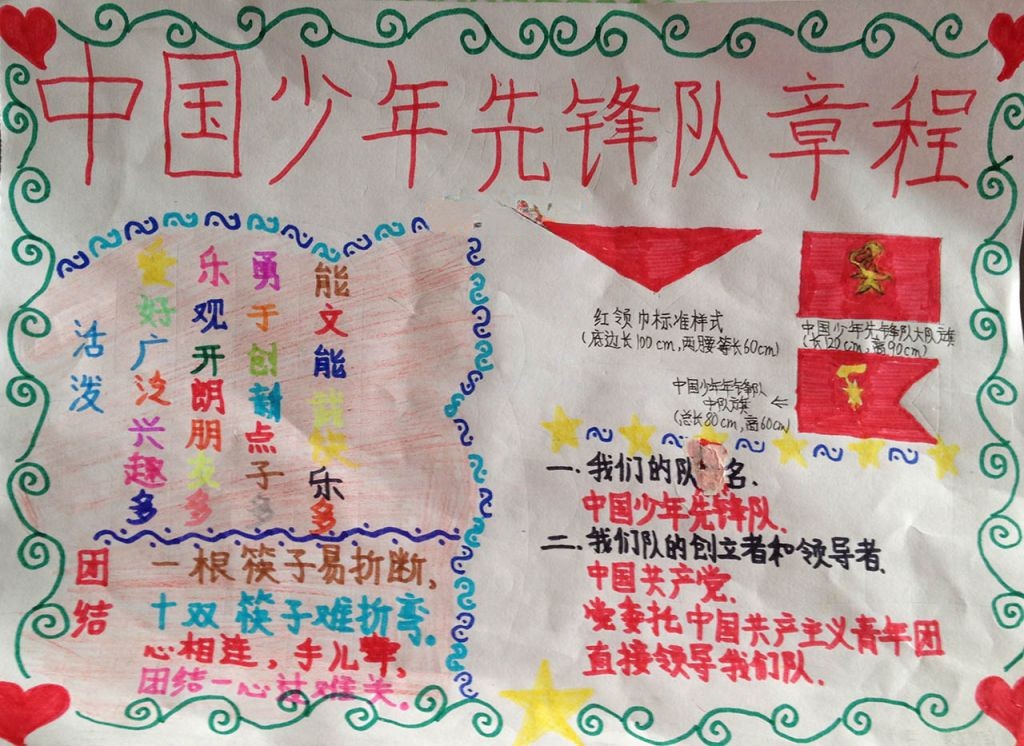 中国少年先锋队章程
活泼
爱好广泛兴趣多
乐观开朗朋友多
勇于创新点子多
能文能
乐多
团结
一根筷子易折断,
十双筷子难折弯。
心相连,手儿牵,
团结一心过难关。
红领巾标准样式
(底边长100cm,两腰等长60cm)
中国少年先锋队大队旗
(长120cm,高90cm)
中国少年年锋队
中队旗
(总长80cm,高60cm)
一.我们的队名.
中国少年先锋队.
二.我们队的创立者和领导者.
中国共产党.
党委托中国共产主义青年团
直接领导我们队.